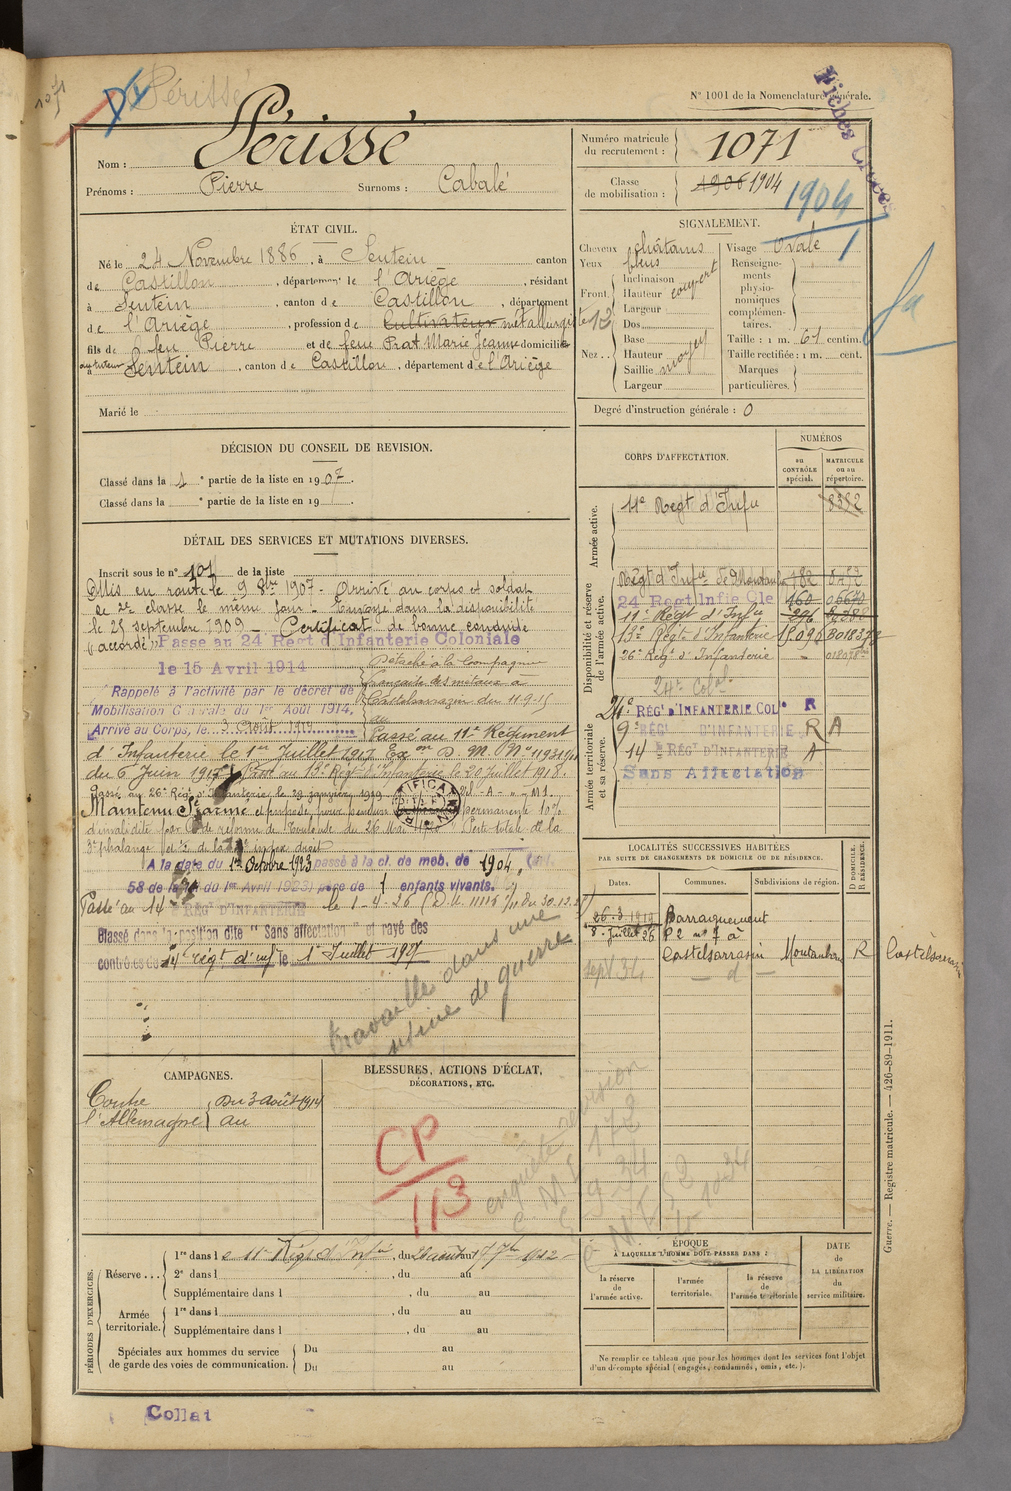 1071
Périssé
N° 1001 de la Nomenclature générale.
Fiches
Nom : Périssé
Prénoms : Pierre Surnoms : Cabalé
Numéro matricule du recrutement : 1071
Classe de mobilisation : 1906 1904
1904
ÉTAT CIVIL.
Né le 24 Novembre 1886, à Sentein canton
de Castillon, département de l'Ariège, résidant
à Sentein, canton de Castillon, département
de l'Ariège, profession de Cultivateur métallurgiste
fils de feu Pierre et de feue Prat Marie Jeanne domiciliés
à Sentein, canton de Castillon, département de l'Ariège
Marié le
SIGNALEMENT.
Cheveux châtains Visage Ovale
Yeux bleus
Front. Inclinaison
Hauteur couvert
Largeur
Nez.. Dos
Base
Hauteur moyen
Saillie
Largeur
Renseignements physionomiques complémentaires.
Taille : 1 m. 61 centim.
Taille rectifiée : 1 m. cent.
Marques particulières.
Degré d'instruction générale : 0
DÉCISION DU CONSEIL DE REVISION.
Classé dans la 1e partie de la liste en 1907.
Classé dans la e partie de la liste en 19 .
DÉTAIL DES SERVICES ET MUTATIONS DIVERSES.
Inscrit sous le n° 101 de la liste
Mis en route le 9 8bre 1907. Arrivé au corps et soldat
de 2e classe le même jour. Envoyé dans la disponibilité
le 25 septembre 1909. Certificat de bonne conduite
"accordé"
Passe au 24 Regt d'Infanterie Coloniale
le 15 Avril 1914
Rappelé à l'activité par le décret de
Mobilisation Générale du 1er Août 1914.
Arrivé au Corps, le 3 Août 1914
Détaché à la Compagnie
française des métaux à
Castelsarrazin du 11-9-15
au
Passé au 11e Régiment
d'Infanterie le 1er Juillet 1917. Exon D. M. N° 11931
du 6 Juin 1917. Passé au 13e Régt d'Infanterie le 20 Juillet 1918.
Passé au 26e Régt d'Infanterie le 23 janvier 1919
Maintenu Sce armé et proposé pour pension permanente 10%
d'invalidité par Con de réforme de Toulouse du 26 Mai Perte totale de la
3e phalange et de la index droit
A la date du 1er Octobre 1923 passé à la cl. de mob. de 1904,
58 de la loi du 1er Avril 1923) père de 1 enfants vivants.
Passé au 14e RÉGt D'INFANTERIE le 1-4-26
Classé dans la position dite "Sans affectation" et rayé des
contrôles du 14e régt d'inf le 1er Juillet 1927
travaille dans une
usine de guerre
CORPS D'AFFECTATION.
NUMÉROS
au CONTRÔLE spécial.
MATRICULE ou au répertoire.
Armée active.
11e Régt d'Infie 8382
Disponibilité et réserve de l'armée active.
Régt d'Infie de Montauban 182
24 Regt Infie Cle 160 05670
11e Régt d'Infie 296
13e Régt d'Infanterie
26e Régt d'Infanterie
24e Colal
Armée territoriale et sa réserve.
24e RÉGt D'INFANTERIE COLe R
9e RÉGt D'INFANTERIE R A
14e RÉGt D'INFANTERIE A
Sans Affectation
LOCALITÉS SUCCESSIVES HABITÉES
PAR SUITE DE CHANGEMENTS DE DOMICILE OU DE RÉSIDENCE.
Dates. Communes. Subdivisions de région. D DOMICILE. R RÉSIDENCE.
26-3-1919 Barraquement
8 Juillet 26 P2 n° 7 à
Castelsarrasin Montauban R Castelsarrasin
sept 34 — d —
CAMPAGNES.
Contre l'Allemagne Du 3 août 1914
au
BLESSURES, ACTIONS D'ÉCLAT,
DÉCORATIONS, ETC.
CP
113
enquête pension
PÉRIODES D'EXERCICES.
Réserve... 1re dans le 11e Régt d'Infie, du 26 août au 17 7bre 1912
2e dans l , du au
Supplémentaire dans l , du au
Armée territoriale. 1re dans l , du au
Supplémentaire dans l , du au
Spéciales aux hommes du service de garde des voies de communication. Du au
Du au
ÉPOQUE
À LAQUELLE L'HOMME DOIT PASSER DANS :
la réserve de l'armée active.
l'armée territoriale.
la réserve de l'armée territoriale
DATE de LA LIBÉRATION du service militaire.
Ne remplir ce tableau que pour les hommes dont les services font l'objet
d'un décompte spécial (engagés, condamnés, omis, etc.).
Guerre. — Registre matricule. — 426-89-1911.
Collat